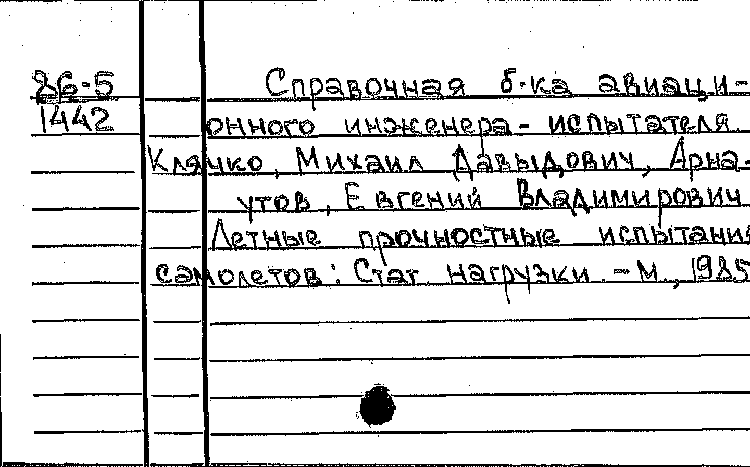 86-5 Справочная б-ка авиаци-
1442 онного инженера-испытателя
Клячко, Михаил Давыдович, Арна-
утов, Евгений Владимирович
Летные прочностные испытания
самолетов: Стат нагрузки. - М., 1985